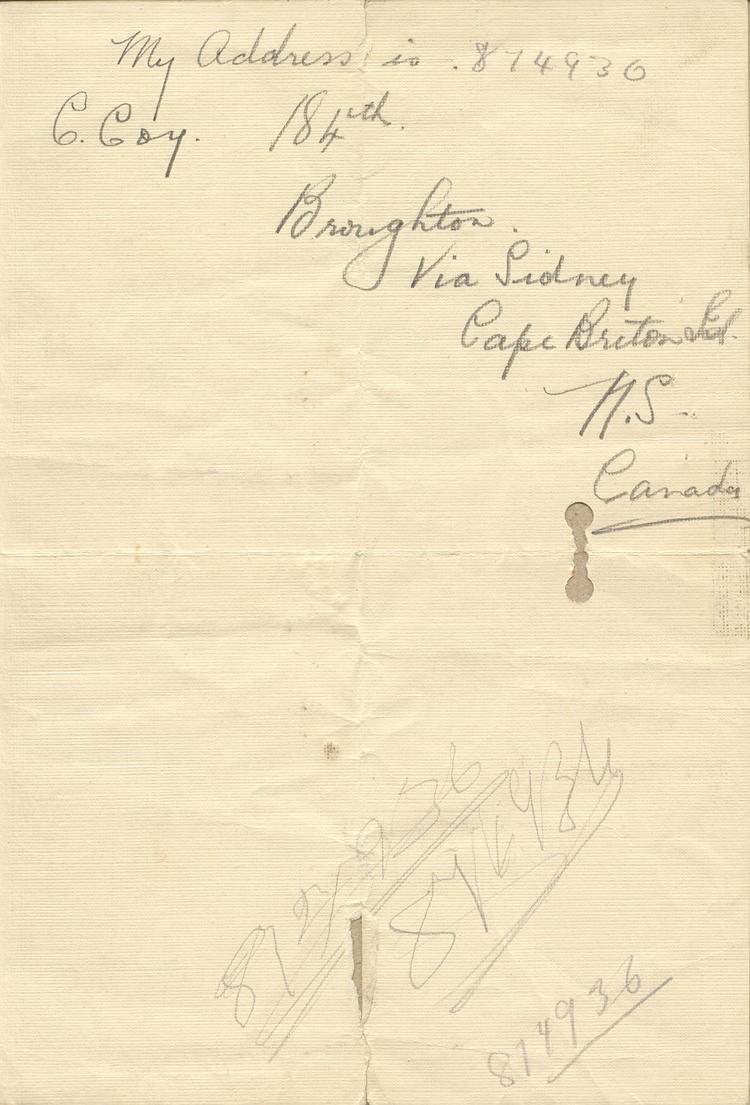 My Address is . 874936
C. Coy. 184th.
Broughton.
Via Sidney
Cape Briton Isl.
N.S.
Canada
874936
874934
874936